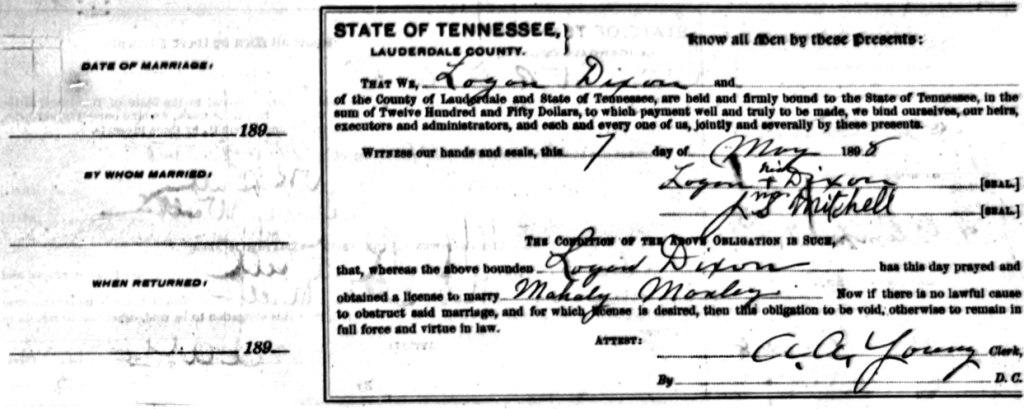 DATE OF MARRIAGE:
189
BY WHOM MARRIED:
WHEN RETURNED:
189
STATE OF TENNESSEE,
LAUDERDALE COUNTY.
Know all Men by these Presents:
THAT WE, Logan Dixon and
of the County of Lauderdale and State of Tennessee, are held and firmly bound to the State of Tennessee, in the
sum of Twelve Hundred and Fifty Dollars, to which payment well and truly to be made, we bind ourselves, our heirs,
executors and administrators, and each and every one of us, jointly and severally by these presents.
WITNESS our hands and seals, this 7 day of May 1898
his
Logan + Dixon [SEAL.]
J S Mitchell [SEAL.]
THE CONDITION OF THE ABOVE OBLIGATION IS SUCH,
that, whereas the above bounden Logan Dixon has this day prayed and
obtained a license to marry Mahaly Now if there is no lawful cause
to obstruct said marriage, and for which license is desired, then this obligation to be void, otherwise to remain in
full force and virtue in law.
ATTEST:
A. A. Young Clerk,
By D. C.